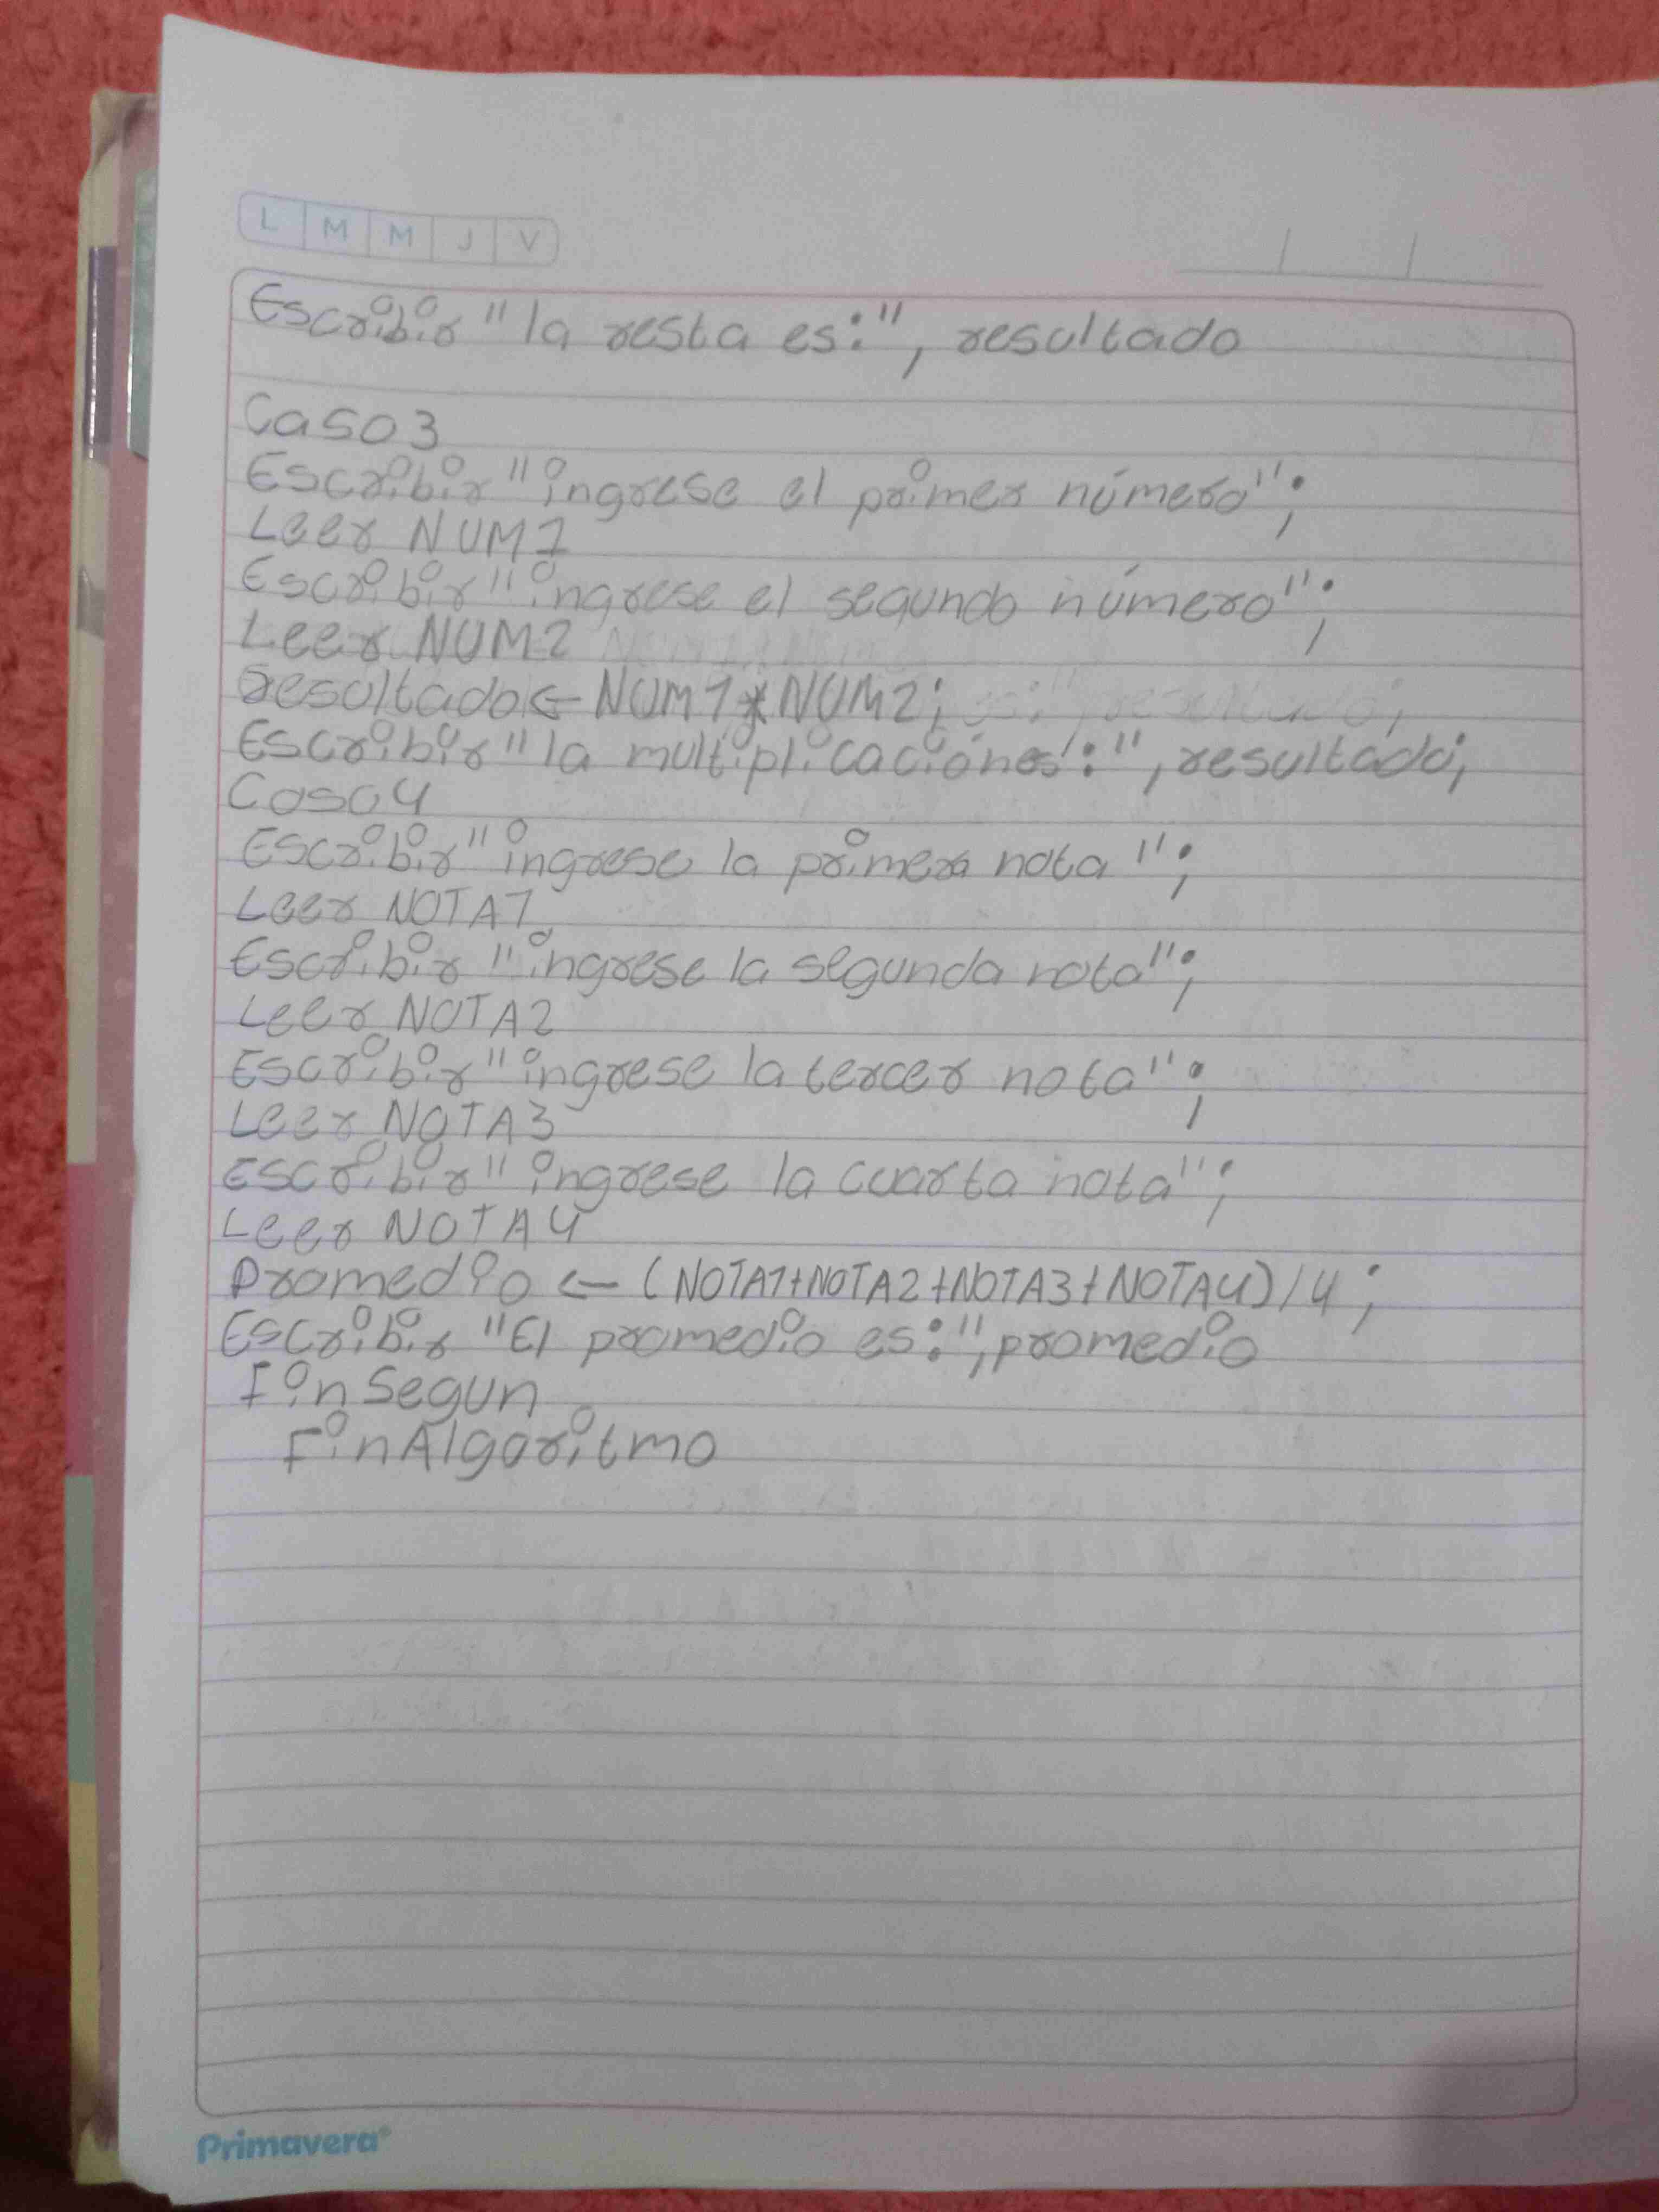 L M M J V
Escribir "la resta es:", resultado
Caso 3
Escribir "ingrese el primer número";
Leer NUM1
Escribir "ingrese el segundo número";
Leer NUM2
resultado ← NUM1 * NUM2;
Escribir "la multiplicaciónes:", resultado;
Caso 4
Escribir "ingrese la primera nota";
Leer NOTA1
Escribir "ingrese la segunda nota";
Leer NOTA2
Escribir "ingrese la tercer nota";
Leer NOTA3
Escribir "ingrese la cuarta nota";
Leer NOTA4
Promedio ← (NOTA1+NOTA2+NOTA3+NOTA4)/4;
Escribir "El promedio es:", promedio
FinSegun
FinAlgoritmo
Primavera